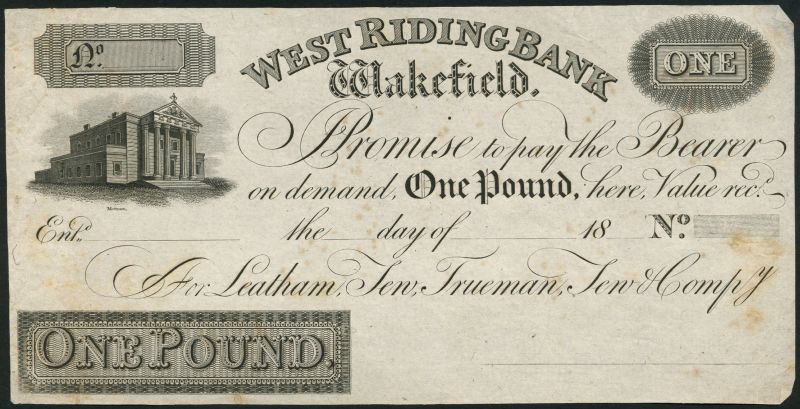 No.
WEST RIDING BANK
ONE
Wakefield.
I Promise to pay the Bearer
on demand, One Pound, here, Value recd.
Entd. the day of 18 No.
For Leatham, Tew, Trueman, Tew & Compy
ONE POUND.